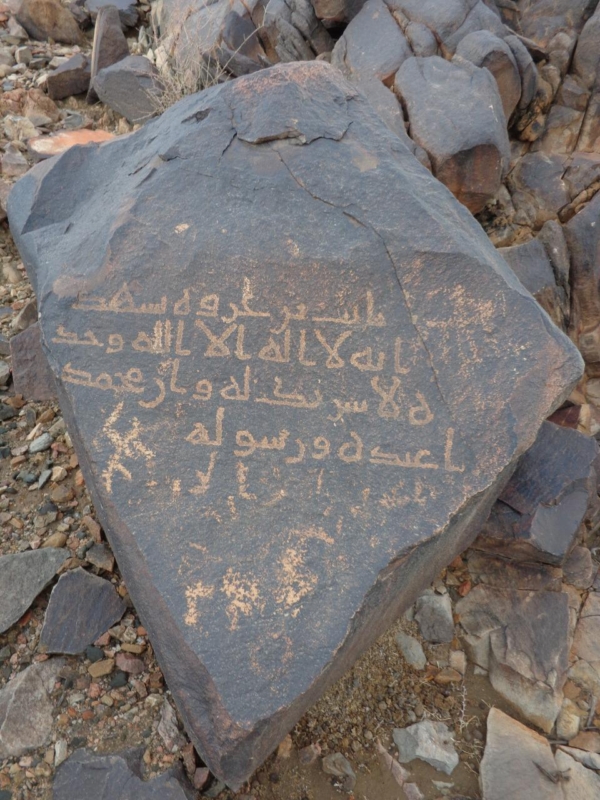 ثابت بن عروه يشهد
انه لا اله الا الله وحد
ه لا شريك له وان محمد
ا عبده ورسوله